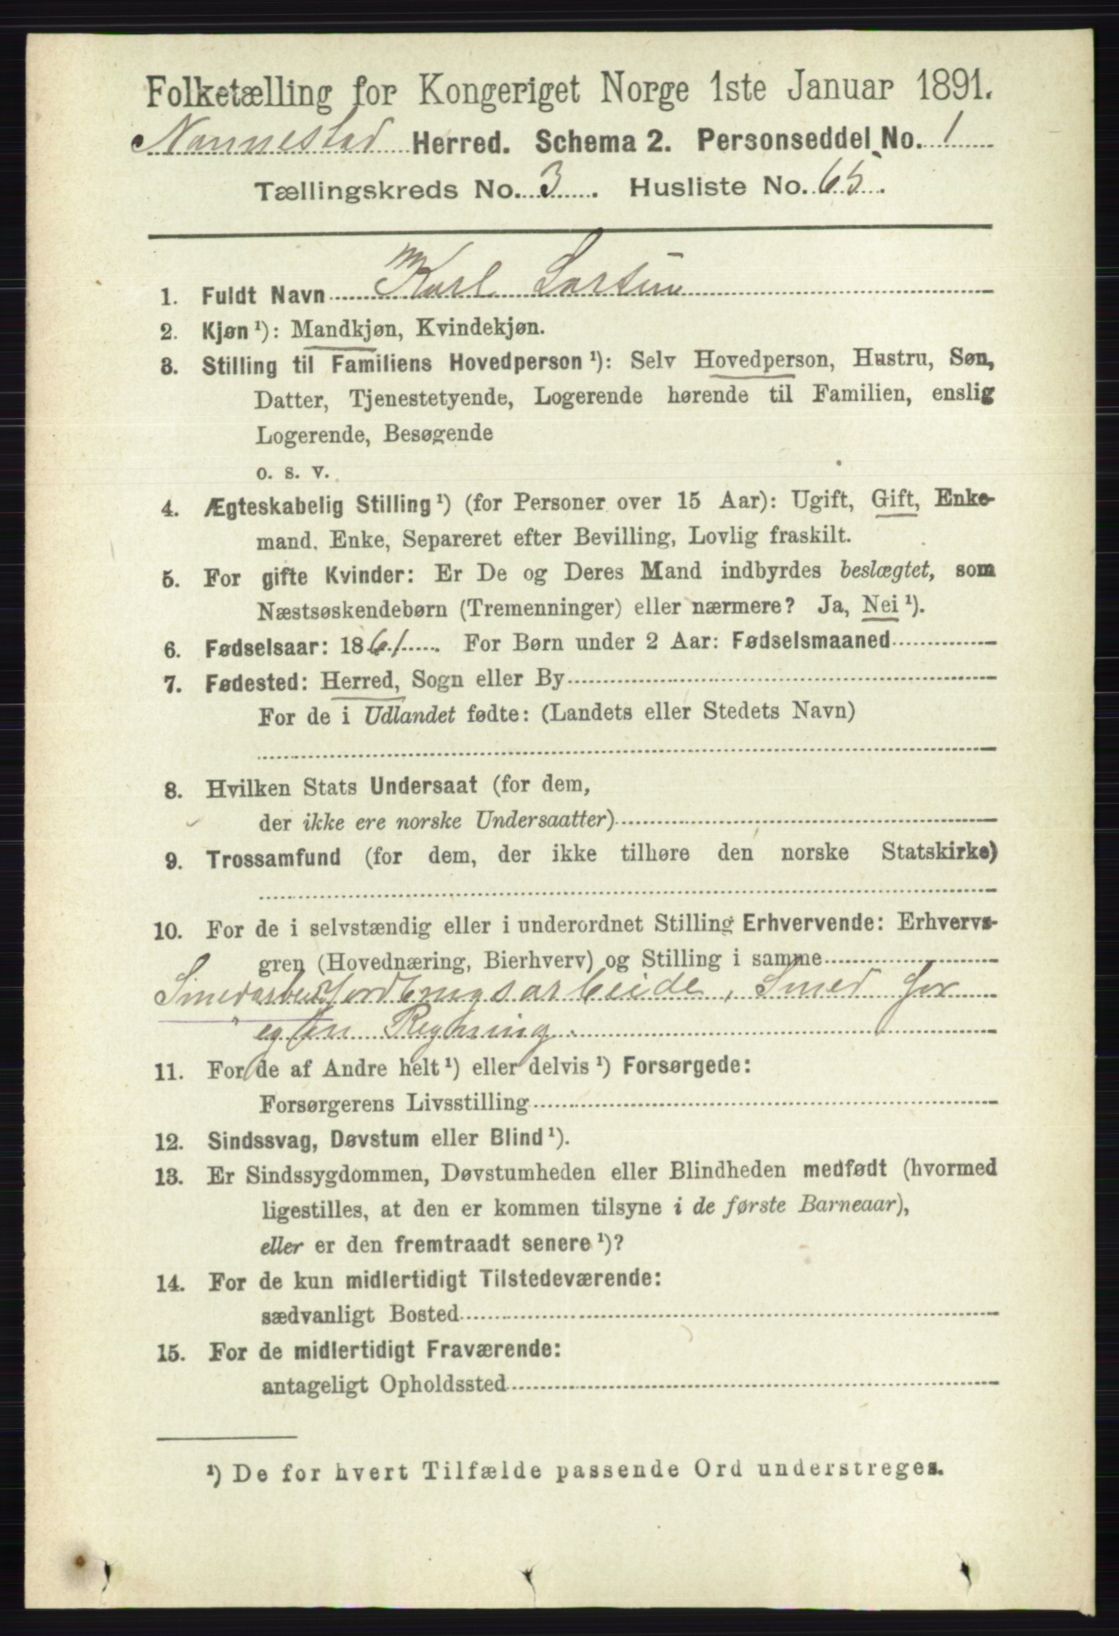 Folketælling for Kongeriget Norge 1ste Januar 1891.
Nannestad Herred. Schema 2. Personseddel No. 1
Tællingskreds No. 3. Husliste No. 65.
1. Fuldt Navn Karl Larsen
2. Kjøn ¹): Mandkjøn, Kvindekjøn.
3. Stilling til Familiens Hovedperson ¹): Selv Hovedperson, Hustru, Søn,
Datter, Tjenestetyende, Logerende hørende til Familien, enslig
Logerende, Besøgende
o. s. v.
4. Ægteskabelig Stilling ¹) (for Personer over 15 Aar): Ugift, Gift, Enke-
mand, Enke, Separeret efter Bevilling, Lovlig fraskilt.
5. For gifte Kvinder: Er De og Deres Mand indbyrdes beslægtet, som
Næstsøskendebørn (Tremenninger) eller nærmere? Ja, Nei ¹).
6. Fødselsaar: 1861. For Børn under 2 Aar: Fødselsmaaned
7. Fødested: Herred, Sogn eller By
For de i Udlandet fødte: (Landets eller Stedets Navn)
8. Hvilken Stats Undersaat (for dem,
der ikke ere norske Undersaatter)
9. Trossamfund (for dem, der ikke tilhøre den norske Statskirke)
10. For de i selvstændig eller i underordnet Stilling Erhvervende: Erhvervs-
gren (Hovednæring, Bierhverv) og Stilling i samme
Jordbrugsarbeide, Smed for
egen Regning.
11. For de af Andre helt ¹) eller delvis ¹) Forsørgede:
Forsørgerens Livsstilling
12. Sindssvag, Døvstum eller Blind ¹).
13. Er Sindssygdommen, Døvstumheden eller Blindheden medfødt (hvormed
ligestilles, at den er kommen tilsyne i de første Barneaar),
eller er den fremtraadt senere ¹)?
14. For de kun midlertidigt Tilstedeværende:
sædvanligt Bosted
15. For de midlertidigt Fraværende:
antageligt Opholdssted
¹) De for hvert Tilfælde passende Ord understreges.